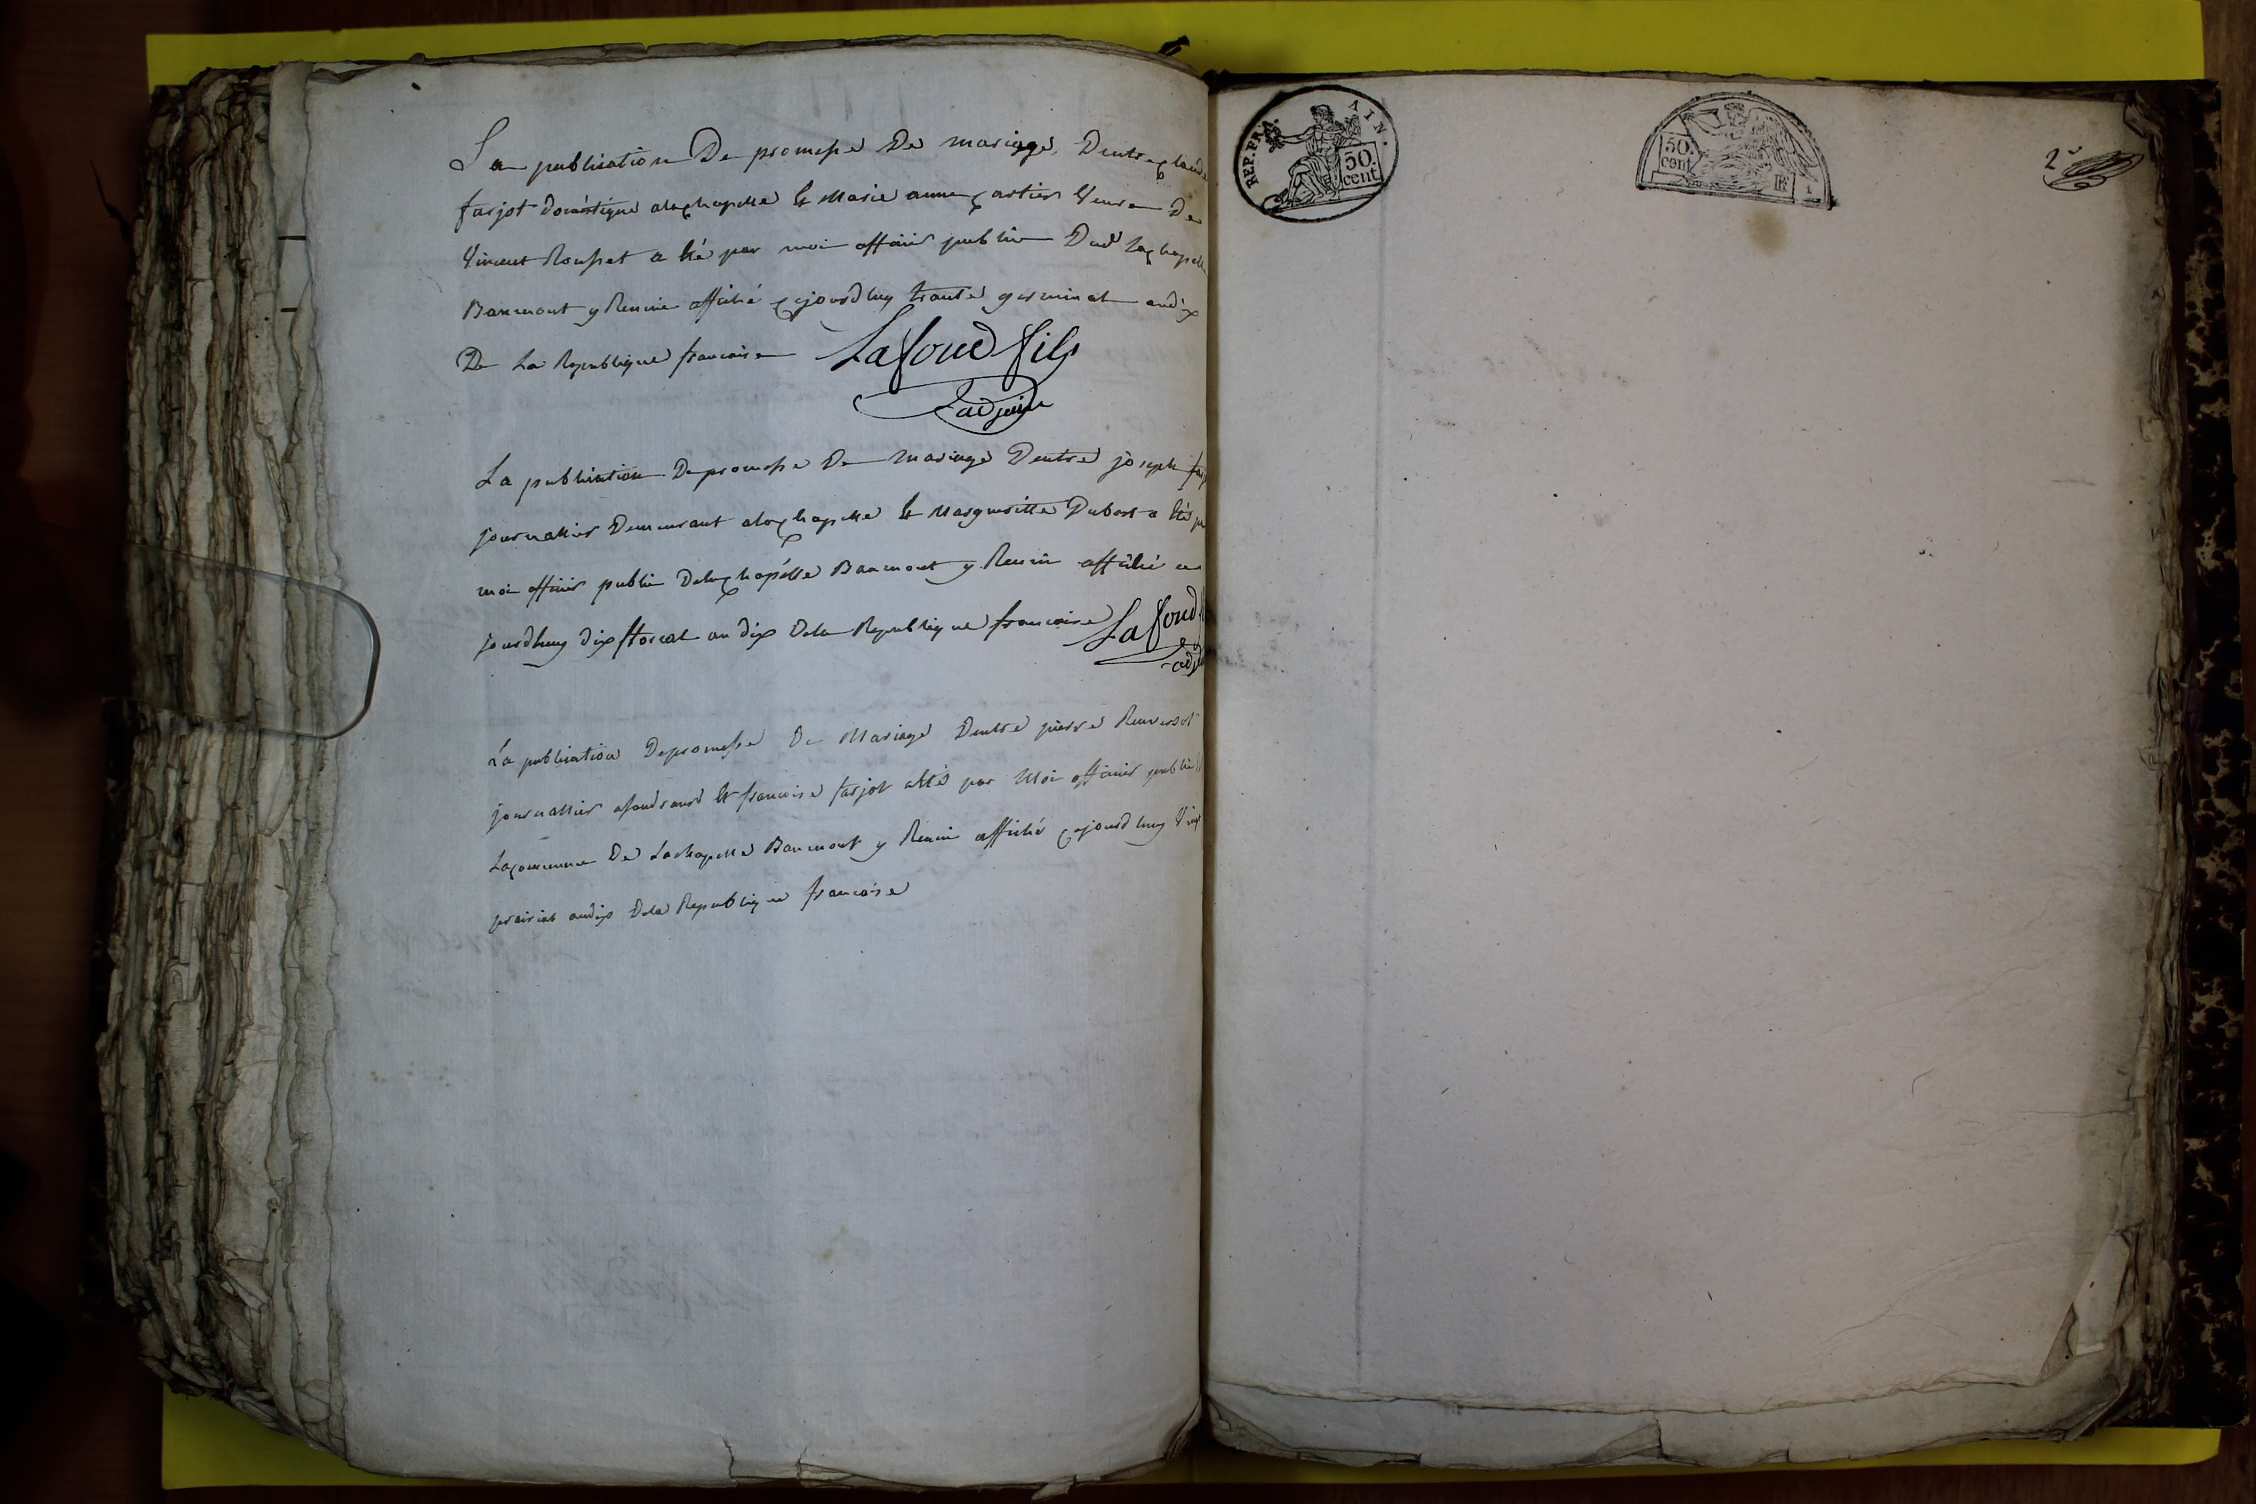 La publication De promesse De mariage Dentre Claude
farjot domestique alachapelle Et Marie anne Cartier Veuve De
Vincent Rousset a Eté par moi officier public Dud La Chapelle
Banmont y Reunie affiché Cejourdhuy trante germinal andix
De La Republique francaise Lafond fils
adjoint
La publication Depromesse De Mariage Dentre joseph
journallier Demeurant alachapelle Et Margueritte Dubost a Eté
moi officier public Delachapélle Banmont y Reuni affiché ce
jourdhuy dix floréal an dix Dela Republique francaise Lafond
La publication Depromesse De Mariage Dentre pierre
journallier Et francoise farjot par Moi officier public
Lacommune De Lachapelle Banmont y Reuni affiché Cejourdhuy
prairial andix Dela Republique francaise
REP. FRA. AIN.
50.
cent
50.
cent
2